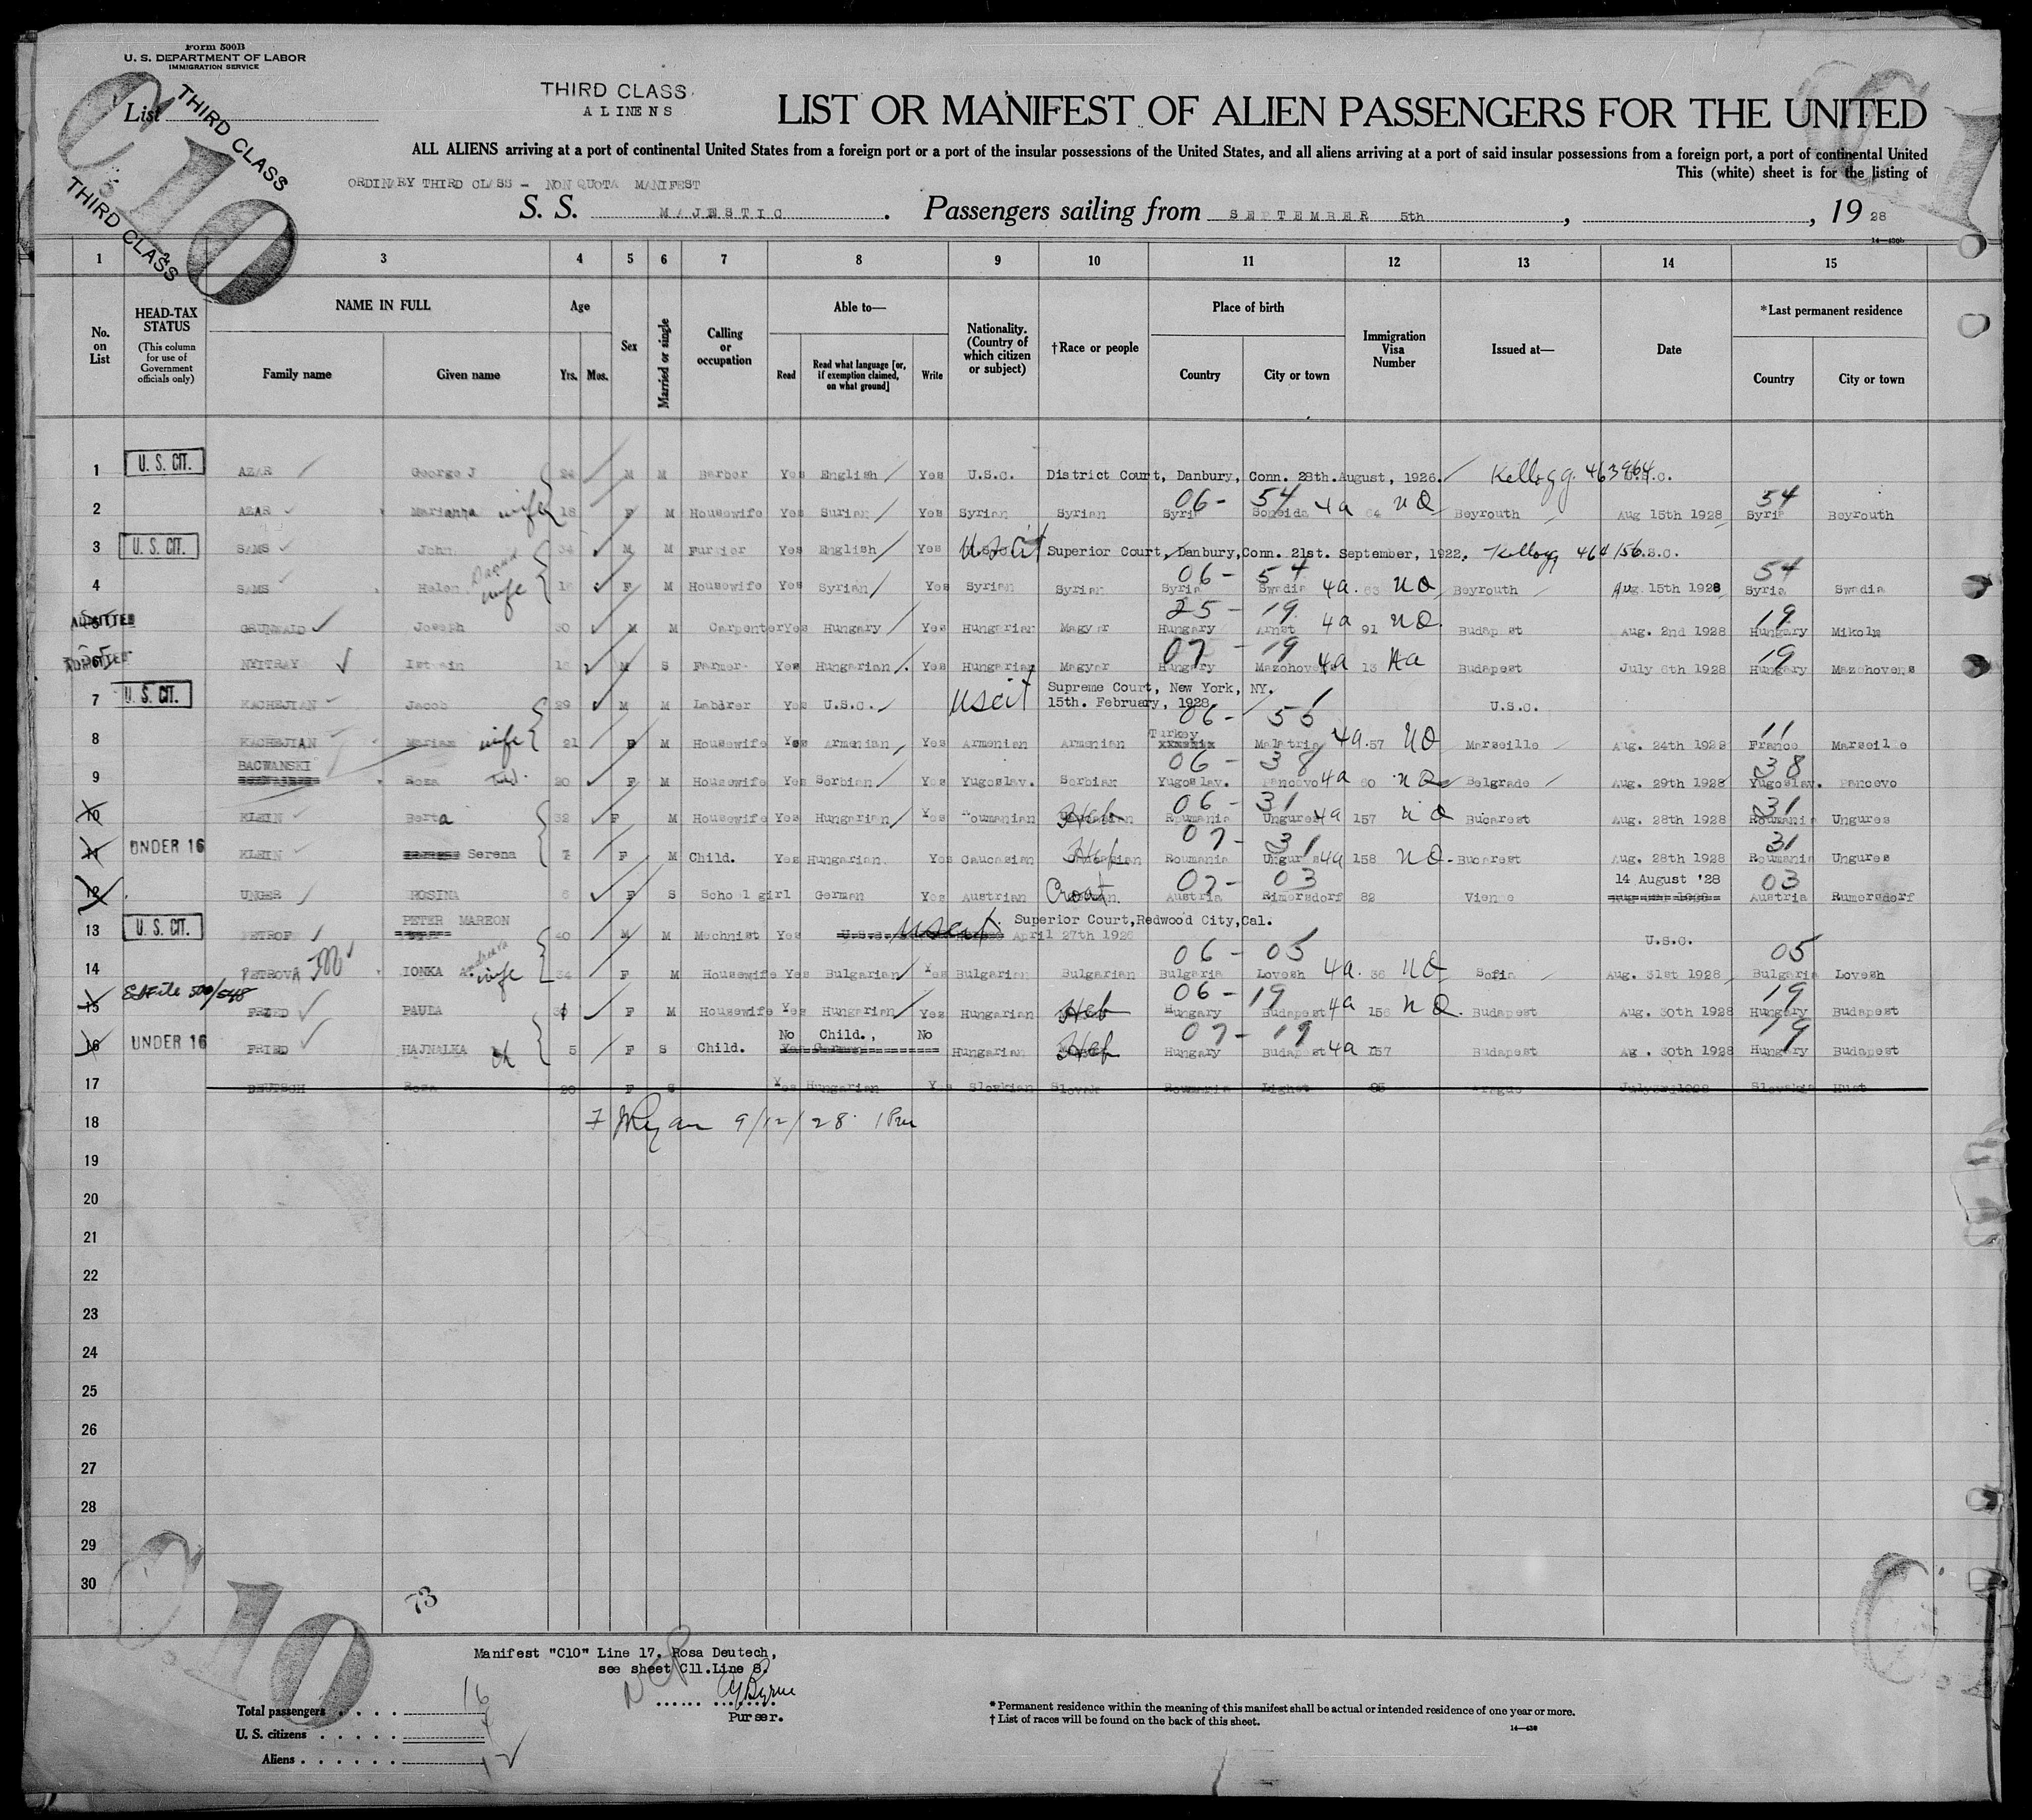 Form 500B
U. S. DEPARTMENT OF LABOR
IMMIGRATION SERVICE
List
C 10
THIRD CLASS
THIRD CLASS
THIRD CLASS
ALINENS
LIST OR MANIFEST OF ALIEN PASSENGERS FOR THE UNITED
ALL ALIENS arriving at a port of continental United States from a foreign port or a port of the insular possessions of the United States, and all aliens arriving at a port of said insular possessions from a foreign port, a port of continental United
This (white) sheet is for the listing of
ORDINARY THIRD CLASS - NON QUOTA MANIFEST
S. S. MAJESTIC . Passengers sailing from SEPTEMBER 5th , , 19 28
14—430b
1 2 3 4 5 6 7 8 9 10 11 12 13 14 15
No. on List
HEAD-TAX STATUS
(This column for use of Government officials only)
NAME IN FULL
Family name Given name
Age
Yrs. Mos.
Sex
Married or single
Calling or occupation
Able to—
Read
Read what language [or, if exemption claimed, on what ground]
Write
Nationality. (Country of which citizen or subject)
†Race or people
Place of birth
Country City or town
Immigration Visa Number
Issued at—
Date
*Last permanent residence
Country City or town
1 U. S. CIT. AZAR George J 24 M M Barber Yes English Yes U.S.C. District Court, Danbury, Conn. 28th.August, 1926. Kellogg. 463964 U.S.C.
06 - 54 54
2 AZAR Marianna wife 18 F M Housewife Yes Surian Yes Syrian Syrian Syria Soneida 4a 64 NQ Beyrouth Aug 15th 1928 Syria Beyrouth
3 U. S. CIT. SAMS John 34 M M Furrier Yes English Yes U.S.Cit Superior Court, Danbury,Conn. 21st. September, 1922. Kellogg 464156 U.S.C.
06 - 54 54
4 SAMS Helen wife 18 F M Housewife Yes Syrian Yes Syrian Syrian Syria Swadia 4a. 63 NQ Beyrouth Aug. 15th 1928 Syria Swadia
25 - 19 19
5 ADMITTED GRUNWALD Joseph 30 M M Carpenter Yes Hungary Yes Hungarian Magyar Hungary Arnst 4a 91 NQ. Budapest Aug. 2nd 1928 Hungary Mikolm
07 - 19 19
6 ADMITTED NYITRAY Istvain 18 M S Farmer Yes Hungarian Yes Hungarian Magyar Hungary Mazohovens 4a 13 Budapest July 6th 1928 Hungary Mazohovens
Supreme Court, New York, NY.
7 U. S. CIT. KACHEJIAN Jacob 29 M M Laborer Yes U.S.C. UScit 15th. February, 1928 U.S.C.
06 - 56 11
8 KACHEJIAN Mariam wife 21 F M Housewife Yes Armenian Yes Armenian Armenian Turkey Malatria 4a.57 NQ Marseille Aug. 24th 1928 France Marseille
BACWANSKI 06 - 38 38
9 Roza 20 F M Housewife Yes Serbian Yes Yugoslav. Serbian Yugoslav. Pancevo 4a 60 NQ Belgrade Aug. 29th 1928 Yugoslav. Pancevo
06 - 31 31
10 KLEIN Berta 32 F M Housewife Yes Hungarian Yes Roumanian Heb Roumania Ungures 4a 157 NQ Bucarest Aug. 28th 1928 Roumania Ungures
07 - 31 31
11 UNDER 16 KLEIN Serena 7 F M Child. Yes Hungarian Yes Caucasian Heb Roumania Ungures 4a 158 NQ. Bucarest Aug. 28th 1928 Roumania Ungures
07 - 03 14 August '28 03
12 UNGER ROSINA 6 F S School girl German Yes Austrian Croat. Austria Rimersdorf 82 Vienne Austria Rumersdorf
PETER MAREON Superior Court,Redwood City,Cal.
13 U. S. CIT. PETROF 40 M M Mechnist Yes UScit April 27th 1926 U.S.C.
06 - 05 05
14 PETROVA IONKA A. wife 34 F M Housewife Yes Bulgarian Yes Bulgarian Bulgarian Bulgaria Lovesh 4a. 36 NQ Sofia Aug. 31st 1928 Bulgaria Lovesh
06 - 19 19
15 FRIED PAULA F M Housewife Yes Hungarian Yes Hungarian Heb Hungary Budapest 4a 156 NQ. Budapest Aug. 30th 1928 Hungary Budapest
No Child., No 07 - 19 19
16 UNDER 16 FRIED HAJNALKA 5 F S Child. Yes German Hungarian Heb Hungary Budapest 4a 157 Budapest Ag. 30th 1928 Hungary Budapest
17 DEUTSCH Roza 20 F S Yes Hungarian Yes Slovkian Slovak Roumania Lighet Prague Slovakia Hust
18 Ryan 9/12/28. 1 Pm
19
20
21
22
23
24
25
26
27
28
29
30
73
C 10
Manifest "C10" Line 17, Rosa Deutech,
see sheet C11.Line 8.
Purser.
Total passengers 16
U. S. citizens
Aliens
* Permanent residence within the meaning of this manifest shall be actual or intended residence of one year or more.
† List of races will be found on the back of this sheet.
14—430